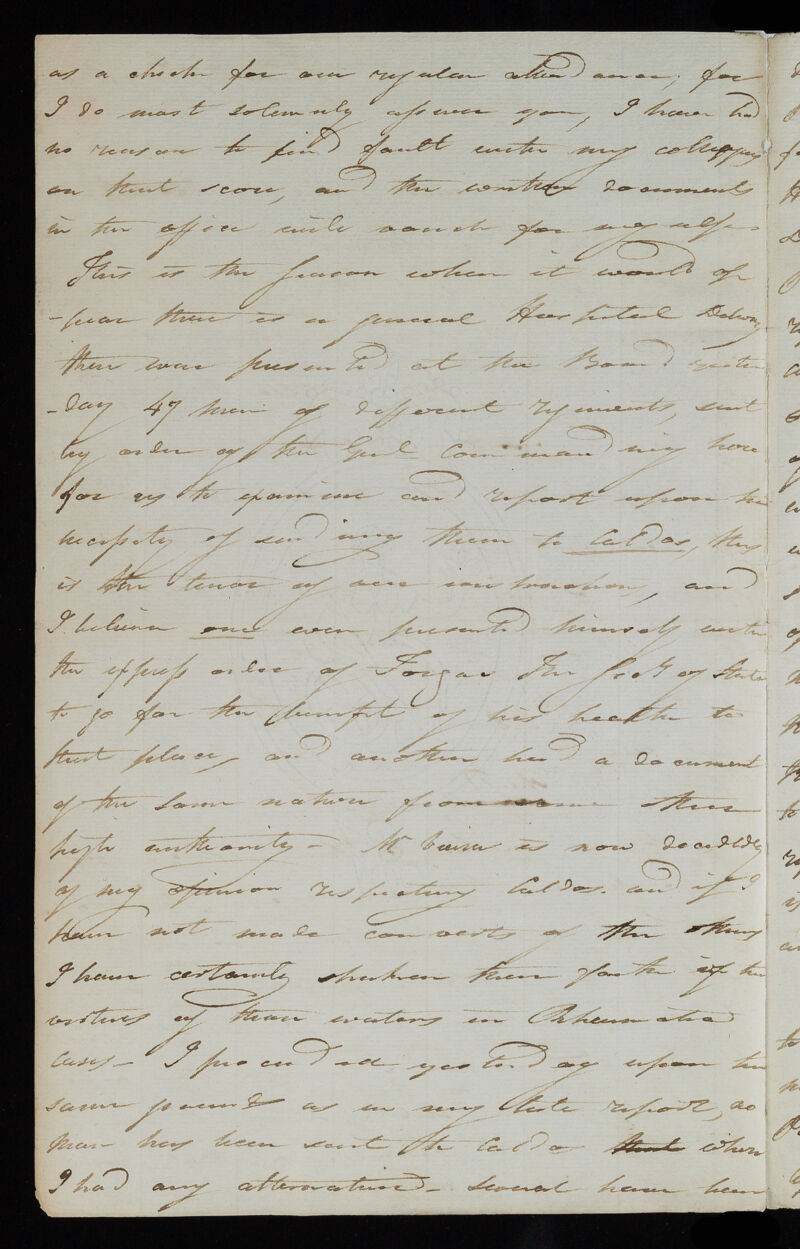 as a check for our regular attendance; for
I do most solemnly assure you, I have had
no reason to find fault with my colleagues
on that score, and the written documents
in the office will vouch for myself.
This is the season when it would ap
-pear there is a general Hospital
there was presented at the Board yester
-day 47 men of different regiments, sent
by order of the Genl Commanding here
for us to examine and report upon the
necessity of sending them to Caldas, this
is the tenor of our instructions, and
I believe one even presented himself with
the express order of the Secy of State
to go for the benefit of his health to
that place, and another had a document
of the same nature from some other
high authority - Mr is now decidedly
of my opinion respecting Caldas. and if I
have not made converts of the others
I have certainly shaken their faith in the
virtues of their waters in Rheumatic
cases - I proceeded yesterday upon the
same grounds as in my late report, no
man has been sent to Caldas when
I had any alternative - several have been